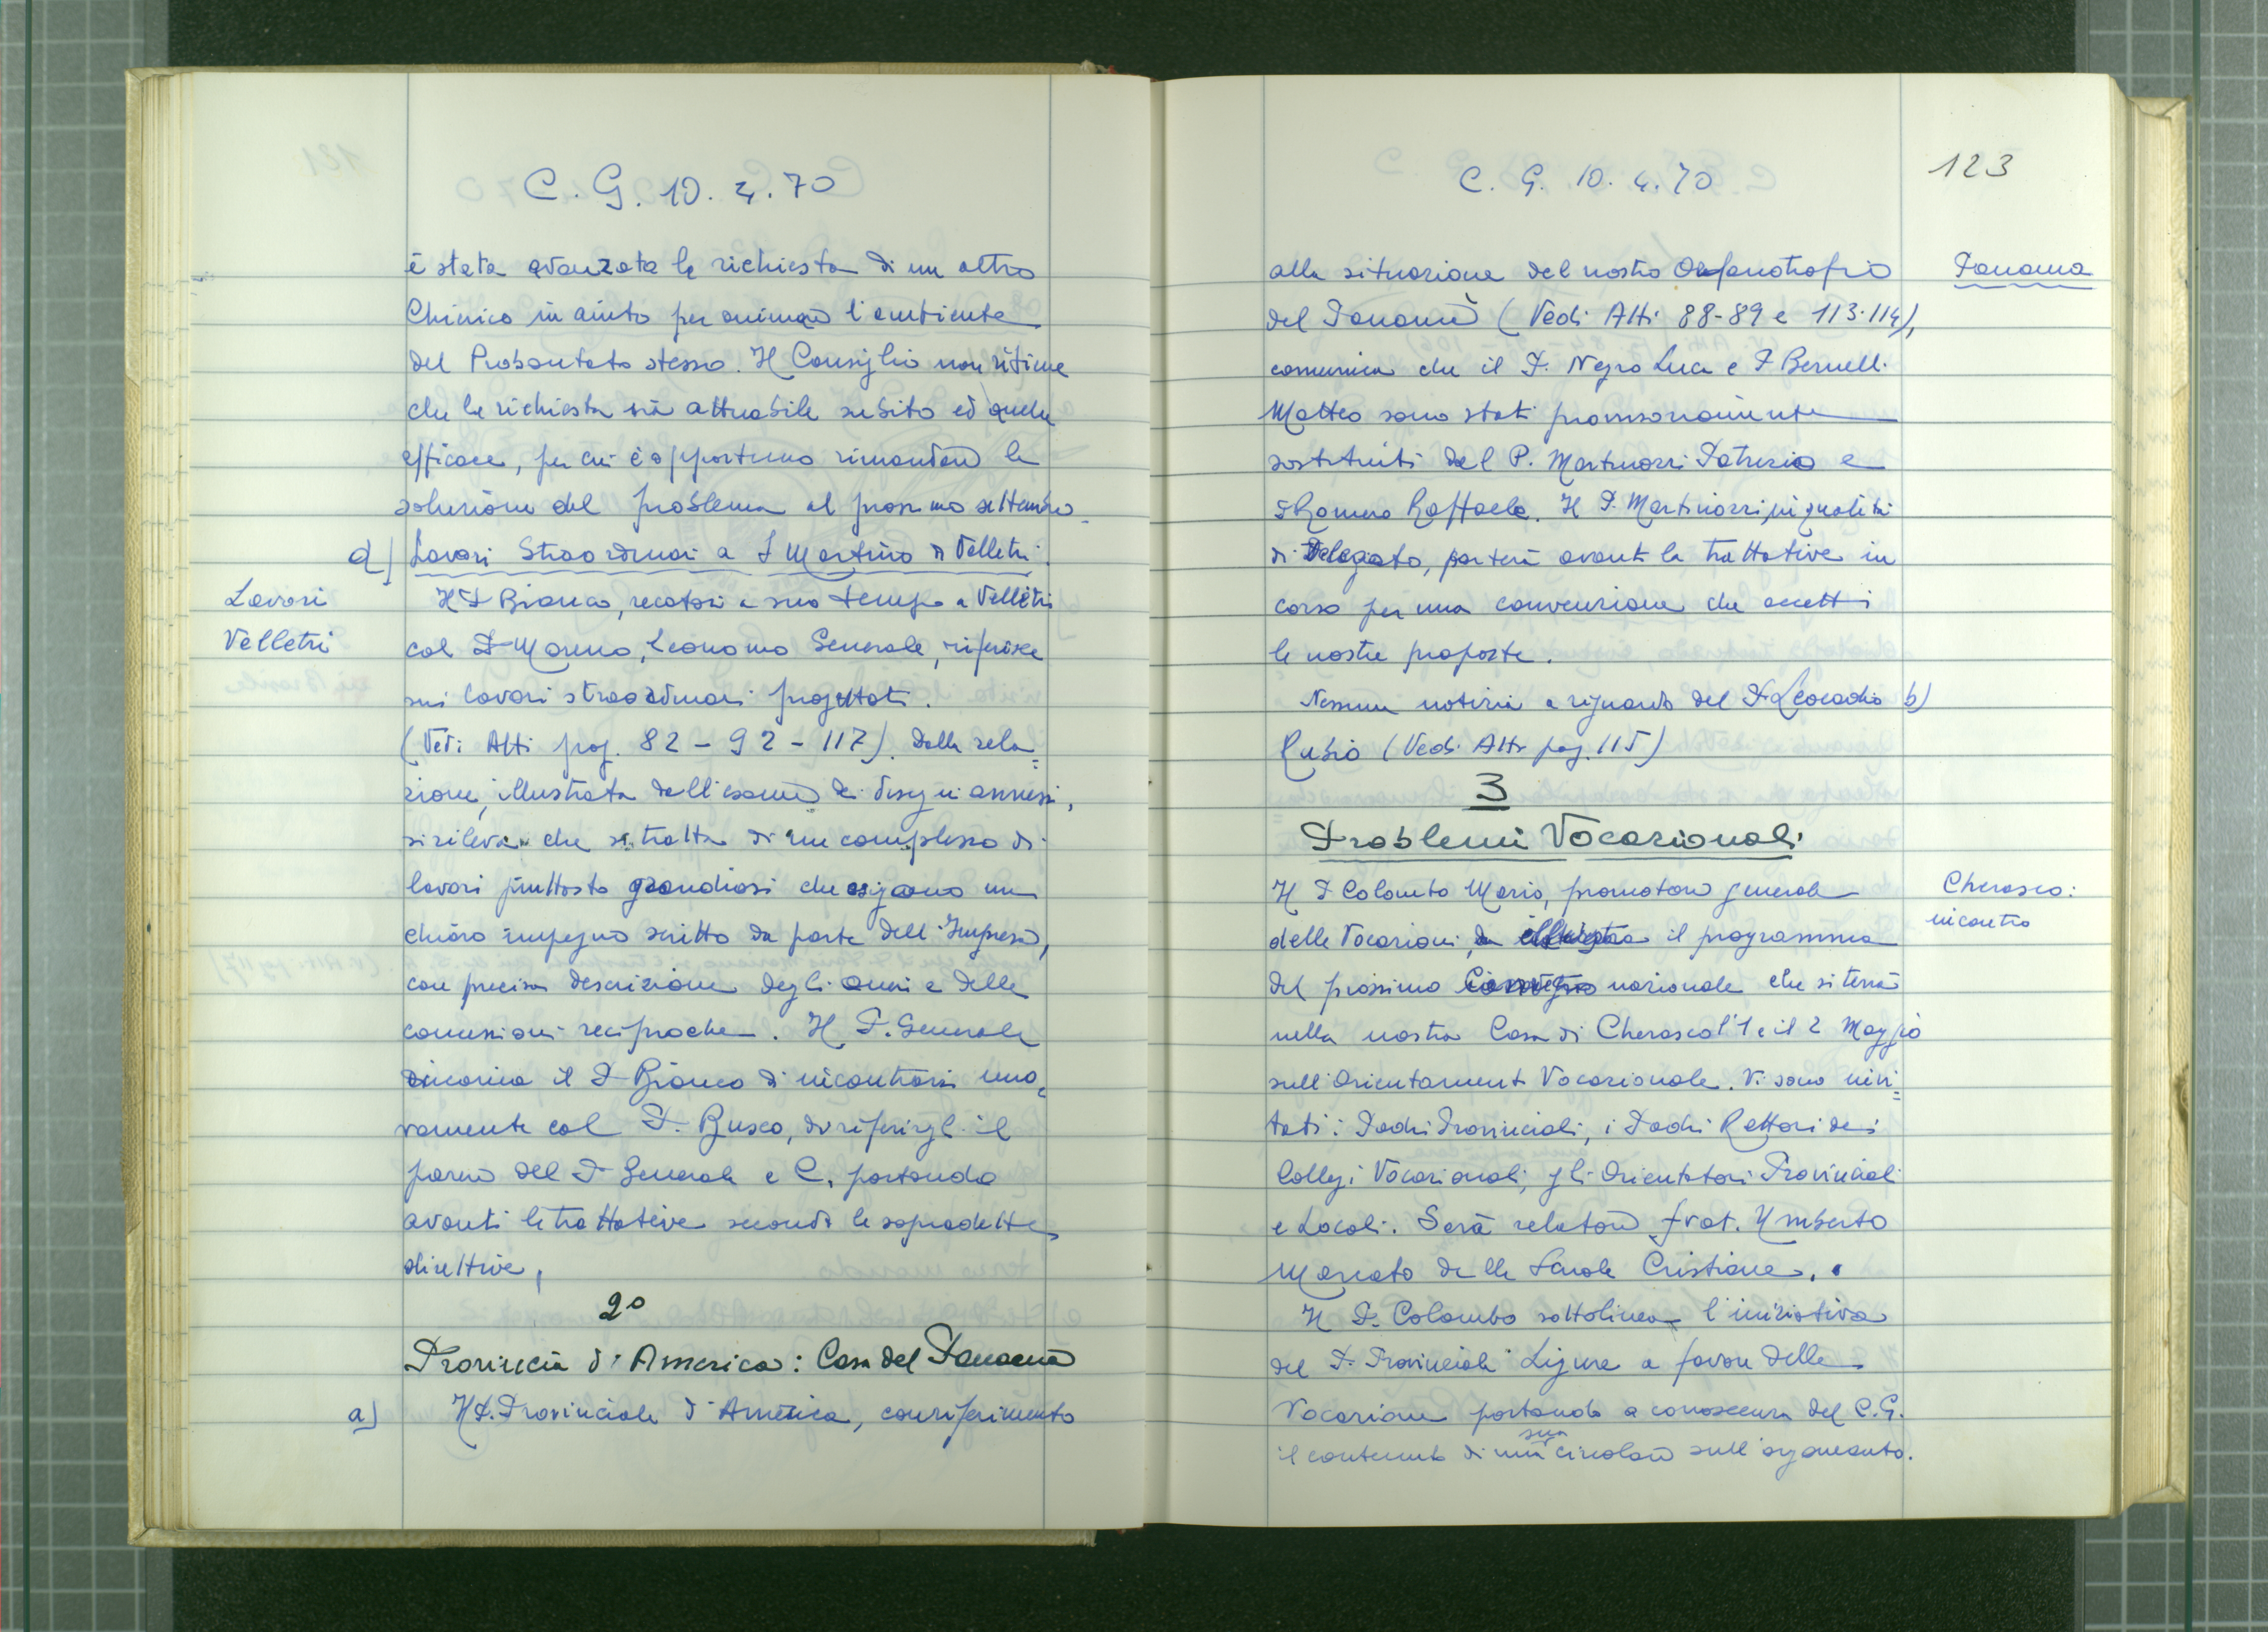 C. G. 10. 4. 70
è stata avanzata la richiesta di un altro
Chierico in aiuto per animare l'ambiente
del Probandato stesso. Il Consiglio non ritiene
che la richiesta sia attuabile subito ed anche
efficace, per cui è opportuno rimandare la
soluzione del problema al prossimo settembre.
d) Lavori Straordinari a S Martino di Velletri.
Lavori
Velletri
Il P Bianco, recatosi a suo tempo a Velletri
col P Moreno, Economo Generale, riferisce
sui lavori straordinari progettati.
(Vedi Atti pag. 82 - 92 - 117). Dalla rela=
zione, illustrata dall'esame dei disegni annessi,
si rileva che si tratta di un complesso di
lavori piuttosto grandiosi che esigono un
chiaro impegno scritto da parte dell'Impresa,
con precisa descrizione degli oneri e delle
concessioni reciproche. Il P. Generale
incarica il P Bianco di incontrarsi nuo=
vamente col P. Busco, di riferirgli il
parere del P Generale e C, portando
avanti le trattative secondo le sopradette
direttive,
2°
Provincia d'America: Casa del Panamà
a) Il P. Provinciale d'America, con riferimento
C. G. 10. 4. 70
123
alla situazione del nostro Orfanotrofio
Panama
del Panamà (Vedi Atti 88-89 e 113-114),
comunica che il P. Negro Luca e P Bernelli
Matteo sono stati provvisoriamente
sostituiti dal P. Martinozzi Patrizio e
P Romero Raffaele. Il P. Martinozzi, in qualità
di Delegato, porterà avanti le trattative in
corso per una convenzione che accetti
le nostre proposte.
Nessuna notizia a riguardo del P Leocadio b)
Rubio (Vedi Atti pag. 115)
3
Problemi Vocazionali
Il P Colombo Mario, promotore generale
Cherasco:
incontro
delle Vocazioni, illustra il programma
del prossimo Convegno nazionale che si terrà
nella nostra Casa di Cherasco l'1 e il 2 Maggio
sull'Orientament. Vocazionale. Vi sono invi=
tati i Padri Provinciali, i Padri Rettori dei
Collegi Vocazionali, gli Orientatori Provinciali
e Locali. Sarà relatore frat. Umberto
Marcato delle Scuole Cristiane.
Il P. Colombo sottolinea l'iniziativa
del P. Provinciale Ligure a favore delle
Vocazione portando a conoscenza del C.G.
il contenuto di una sua circolare sull'argomento.